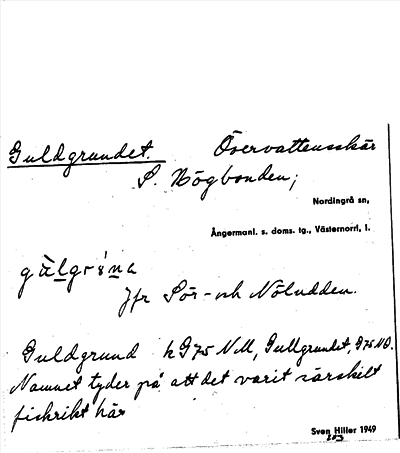 Guldgrundet. Övervattensskär
S. Högbonden;
Nordingrå sn,
Ångermanl. s. doms. tg., Västernorrl. l.
Jfr Sör- och Nöludden.
Guldgrund kG75 NM, Gullgrundet, G75 NO.
Namnet tyder på att det varit särskilt
fiskrikt här
Sven Hiller 1949
203